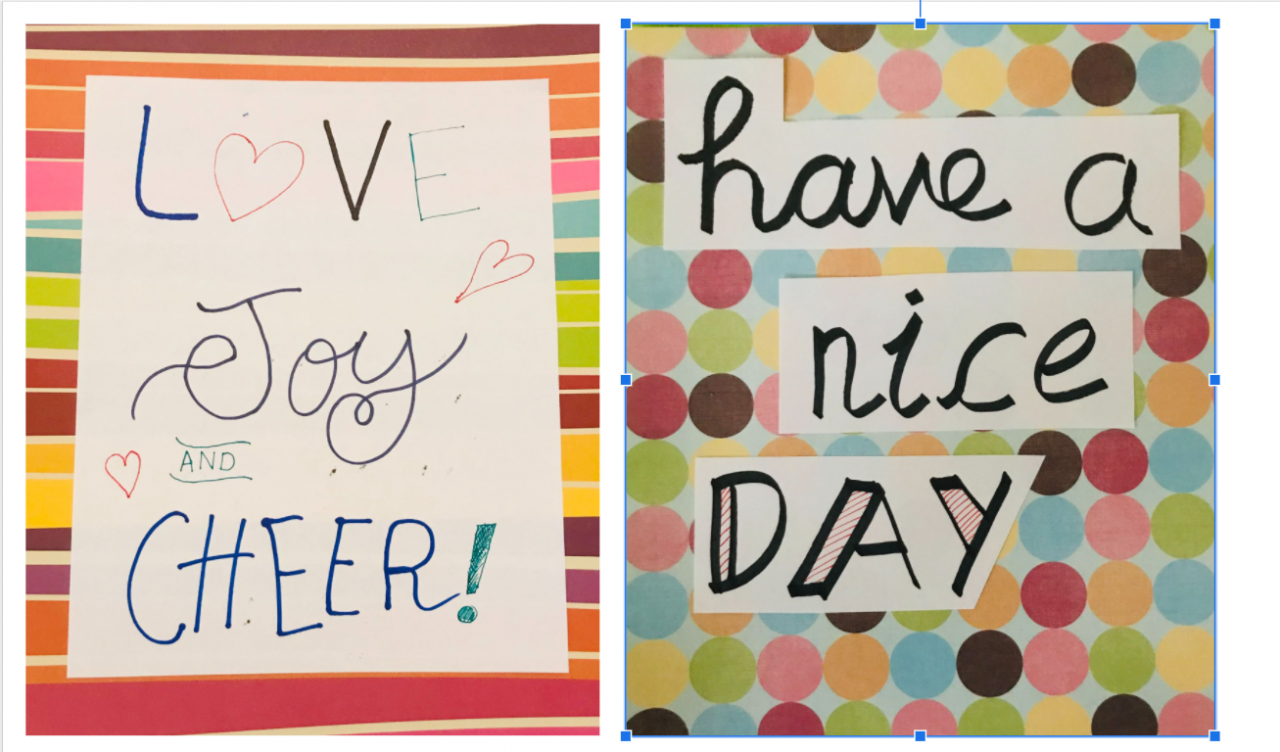 LOVE
Joy
AND
CHEER!
have a
nice
DAY